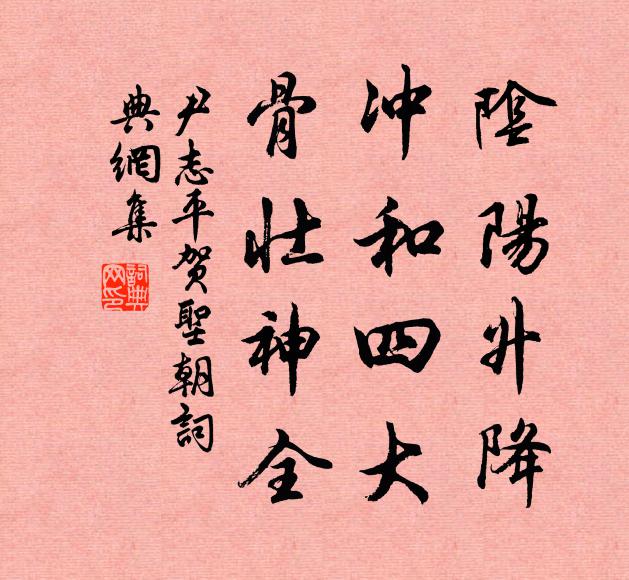 陰陽升降
沖和四大
骨壯神全
尹志平賀聖朝詞
典網集
詞典
网印